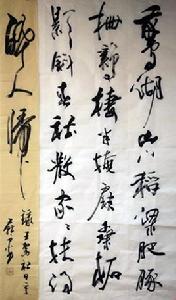 鵞湖山下稻粱肥豚
栅鷄棲半掩扉桑柘
影斜春社散家家扶得
醉人歸
録王駕社日